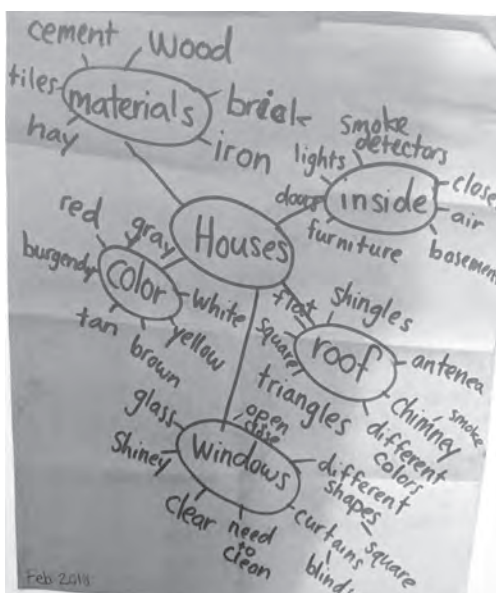 cement
wood
tiles
materials
brick
hay
iron
smoke
detectors
lights
doors
inside
air
furniture
Houses
red
gray
burgendy
color
white
tan
brown
yellow
shingles
square
roof
antenea
triangles
chimney
smoke
different
colors
glass
open
close
Shiney
windows
different
shapes
square
clear
need
to
clean
curtains
Feb